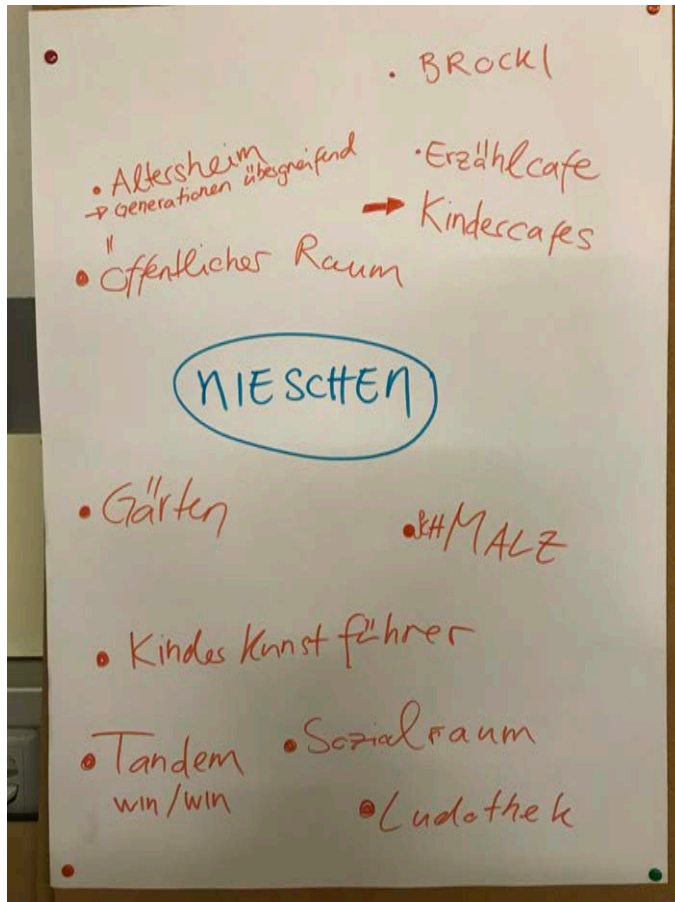 • BROCKI
• Altersheim
→ Generationen übergreifend
• Erzählcafe
→ Kindercafes
• Öffentlicher Raum
NIESCHEN
• Gärten
• MALZ
• Kinder Kunst führer
• Sozialraum
• Tandem
win/win
• Ludothek